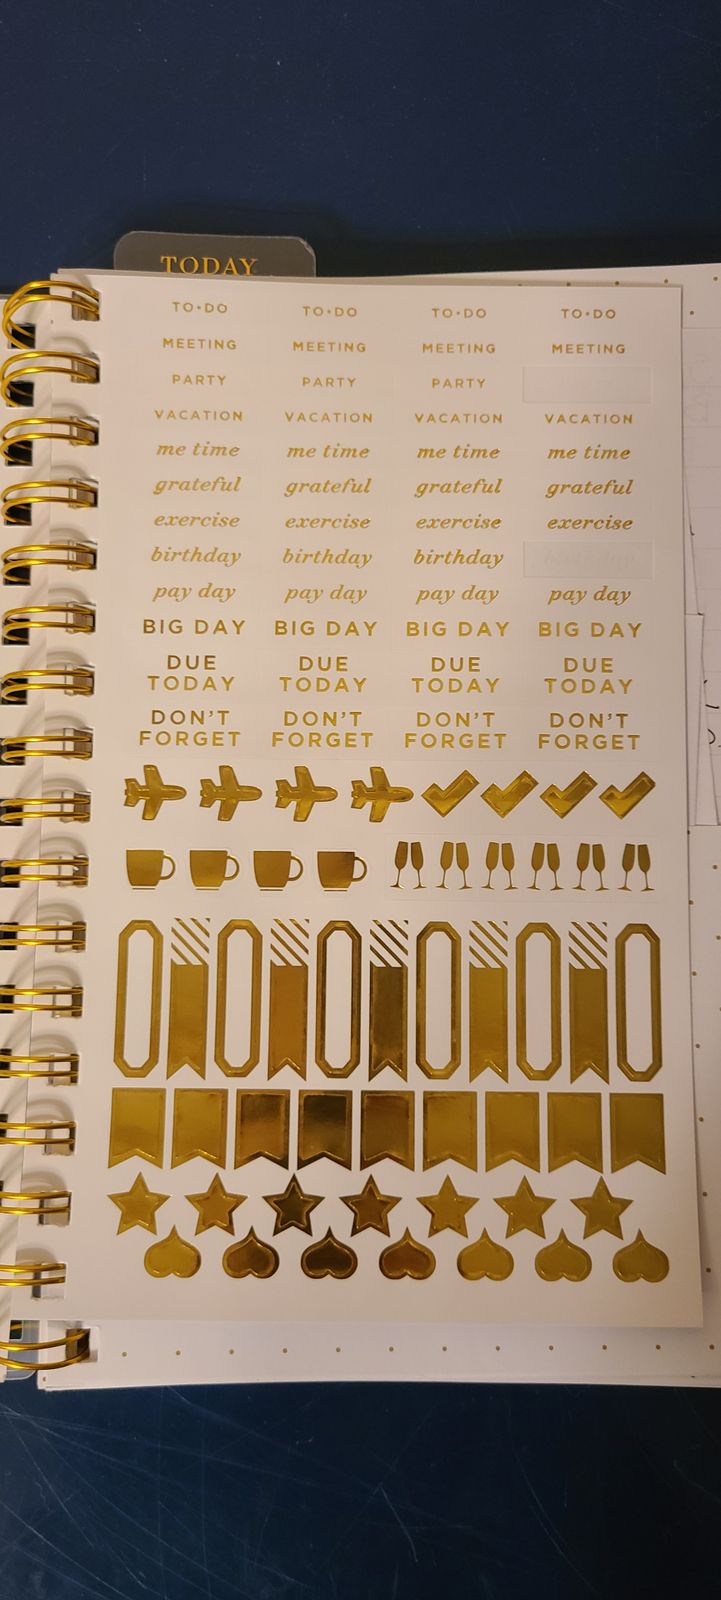 TODAY
TO•DO TO•DO TO•DO TO•DO
MEETING MEETING MEETING MEETING
PARTY PARTY PARTY
VACATION VACATION VACATION VACATION
me time me time me time me time
grateful grateful grateful grateful
exercise exercise exercise exercise
birthday birthday birthday birthday
pay day pay day pay day pay day
BIG DAY BIG DAY BIG DAY BIG DAY
DUE DUE DUE DUE
TODAY TODAY TODAY TODAY
DON'T DON'T DON'T DON'T
FORGET FORGET FORGET FORGET